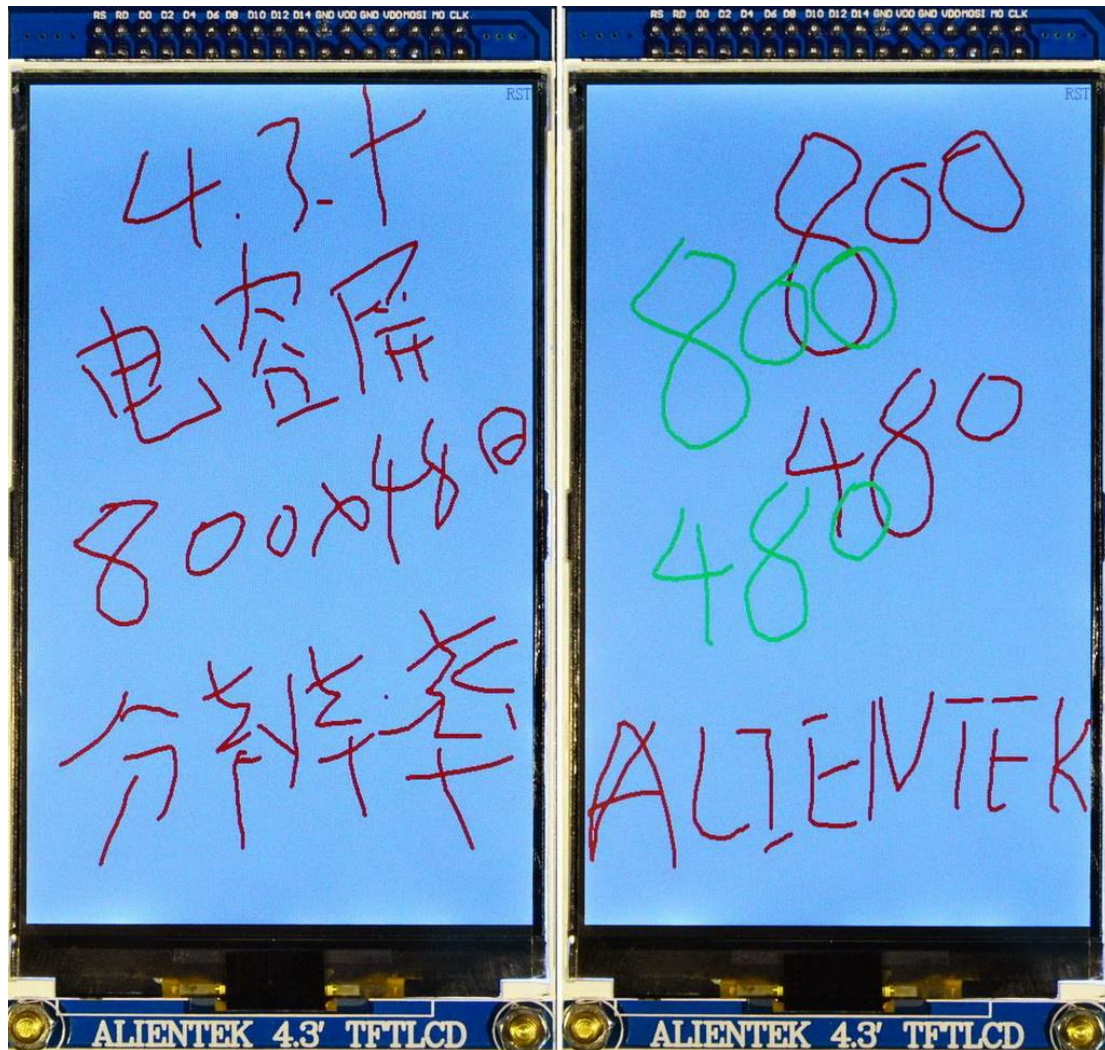 RS RD D0 D2 D4 D6 D8 D10 D12 D14 GND VDD GND VDD MOSI MO CLK
RST
4.3寸
电容屏
800x480
分辨率
ALIENTEK 4.3' TFTLCD
RS RD D0 D2 D4 D6 D8 D10 D12 D14 GND VDD GND VDD MOSI MO CLK
RST
800
800
480
480
ALIENTEK
ALIENTEK 4.3' TFTLCD